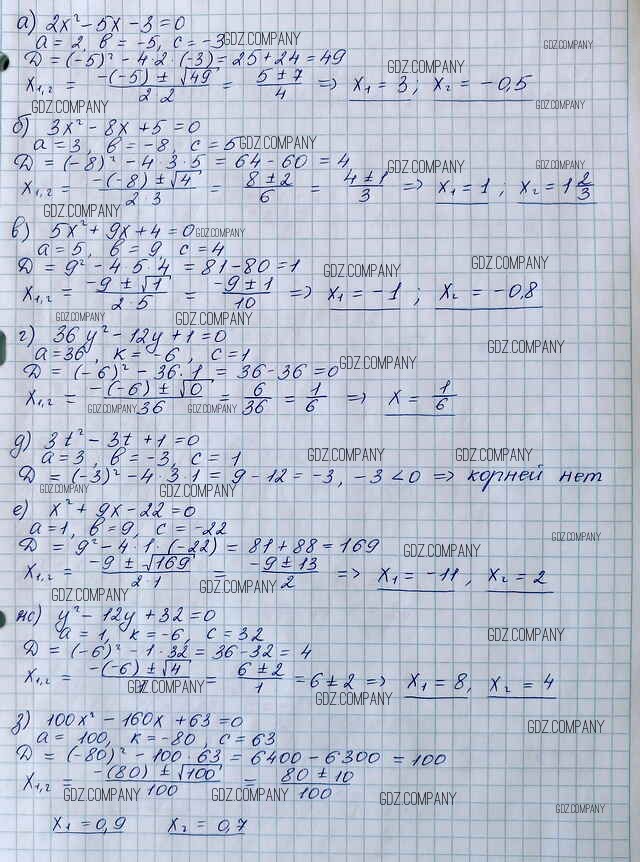 а) 2x² - 5x - 3 = 0
a = 2, в = -5, c = -3 GDZ.COMPANY
GDZ.COMPANY
D = (-5)² - 4·2·(-3) = 25 + 24 = 49
GDZ.COMPANY
x₁,₂ = (-(-5) ± √49)/(2·2) = (5 ± 7)/4 => x₁ = 3; x₂ = -0,5
GDZ.COMPANY GDZ.COMPANY
б) 3x² - 8x + 5 = 0
a = 3, в = -8, c = 5 GDZ.COMPANY
D = (-8)² - 4·3·5 = 64 - 60 = 4
GDZ.COMPANY GDZ.COMPANY
x₁,₂ = (-(-8) ± √4)/(2·3) = (8 ± 2)/6 = (4 ± 1)/3 => x₁ = 1; x₂ = 1 2/3
GDZ.COMPANY
в) 5x² + 9x + 4 = 0 GDZ.COMPANY
a = 5, в = 9, c = 4
D = 9² - 4·5·4 = 81 - 80 = 1
GDZ.COMPANY GDZ.COMPANY
x₁,₂ = (-9 ± √1)/(2·5) = (-9 ± 1)/10 => x₁ = -1; x₂ = -0,8
GDZ.COMPANY GDZ.COMPANY
г) 36y² - 12y + 1 = 0
GDZ.COMPANY
a = 36, к = -6, c = 1
D = (-6)² - 36·1 = 36 - 36 = 0
GDZ.COMPANY
x₁,₂ = (-(-6) ± √0)/36 = 6/36 = 1/6 => x = 1/6
GDZ.COMPANY GDZ.COMPANY
д) 3t² - 3t + 1 = 0
a = 3, в = -3, c = 1
GDZ.COMPANY GDZ.COMPANY
D = (-3)² - 4·3·1 = 9 - 12 = -3, -3 < 0 => корней нет
GDZ.COMPANY GDZ.COMPANY
е) x² + 9x - 22 = 0
a = 1, в = 9, c = -22
GDZ.COMPANY
D = 9² - 4·1·(-22) = 81 + 88 = 169
GDZ.COMPANY
x₁,₂ = (-9 ± √169)/(2·1) = (-9 ± 13)/2 => x₁ = -11, x₂ = 2
GDZ.COMPANY GDZ.COMPANY
ж) y² - 12y + 32 = 0
a = 1, к = -6, c = 32
GDZ.COMPANY
D = (-6)² - 1·32 = 36 - 32 = 4
x₁,₂ = (-(-6) ± √4)/1 = (6 ± 2)/1 = 6 ± 2 => x₁ = 8, x₂ = 4
GDZ.COMPANY GDZ.COMPANY
з) 100x² - 160x + 63 = 0
GDZ.COMPANY
a = 100, к = -80, c = 63
D = (-80)² - 100·63 = 6400 - 6300 = 100
x₁,₂ = (-(80) ± √100)/100 = (80 ± 10)/100
GDZ.COMPANY GDZ.COMPANY GDZ.COMPANY
GDZ.COMPANY
x₁ = 0,9 x₂ = 0,7